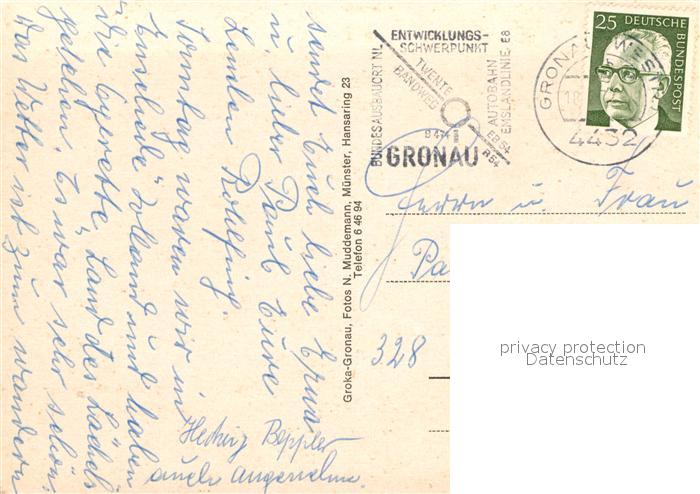 sendet Euch liebe Erna
u. lieber Paul Eure
Lenchen Rohlfing.
Sonntag waren wir in
Enschede Holland und haben
die Operette "Land des Lächelns"
gesehen. Es war sehr schön.
Das Wetter ist zum wandern
auch angenehm.
Hedwig Beppler
Groka-Gronau, Fotos N. Muddemann, Münster, Hansaring 23
Telefon 6 46 94
ENTWICKLUNGS-
SCHWERPUNKT
BUNDESAUSBAUORT NL
TWENTE
RANDWEG
AUTOBAHN
EMSLANDLINIE E8
B 441
EB 54
R64
GRONAU
GRONAU (WESTF)
18
4432
25 DEUTSCHE
BUNDESPOST
Herrn u. Frau
Pa
328
privacy protection
Datenschutz